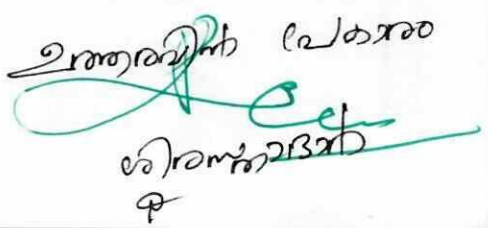 ഉത്തരവിൻ പ്രകാരം
ശിരസ്തദാർ